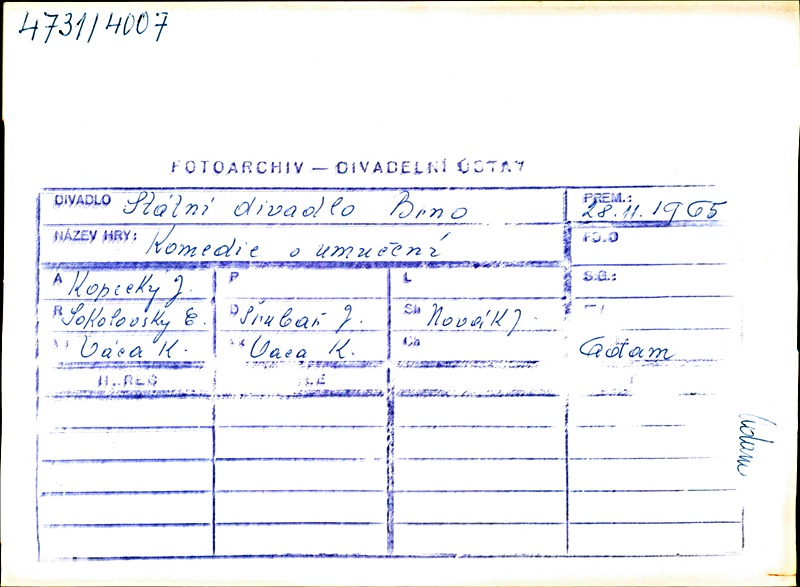 4731/4007
FOTOARCHIV — DIVADELNÍ ÚSTAV
DIVADLO Státní divadlo Brno PREM.: 28.11.1965
NÁZEV HRY: Komedie o umučení FOTO
A Kopecký J. P L S.G.:
R Sokolovský E. D Štrubař J. Sb Novák J.
Váca K. Vaca K. Ch Adam
Adam